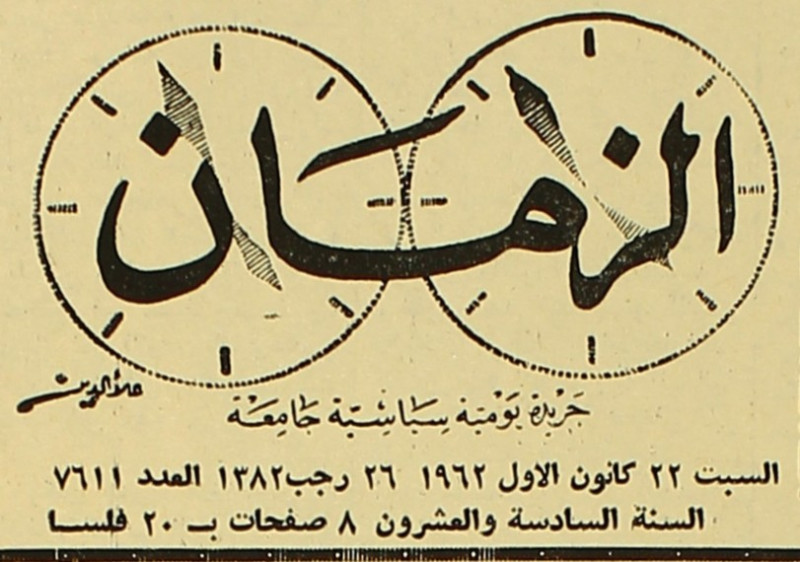 الزمان
علاءالدين
جريدة يومية سياسية جامعة
السبت ٢٢ كانون الاول ١٩٦٢ ٢٦ رجب ١٣٨٢ العدد ٧٦١١
السنة السادسة والعشرون ٨ صفحات بـ ٢٠ فلسا